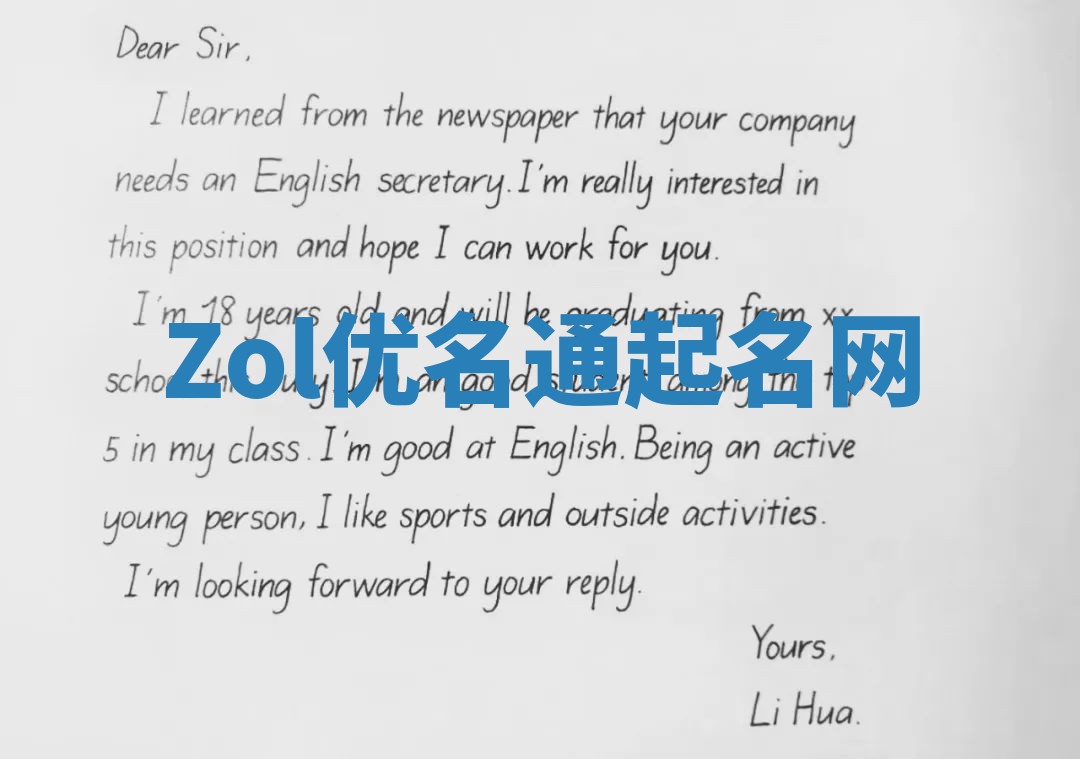 Dear Sir,
I learned from the newspaper that your company
needs an English secretary. I'm really interested in
this position and hope I can work for you.
I'm 18 years old and will be graduating from xx
Zol优名通起名网
school this July. I'm an good student among the top
5 in my class. I'm good at English. Being an active
young person, I like sports and outside activities.
I'm looking forward to your reply.
Yours,
Li Hua.